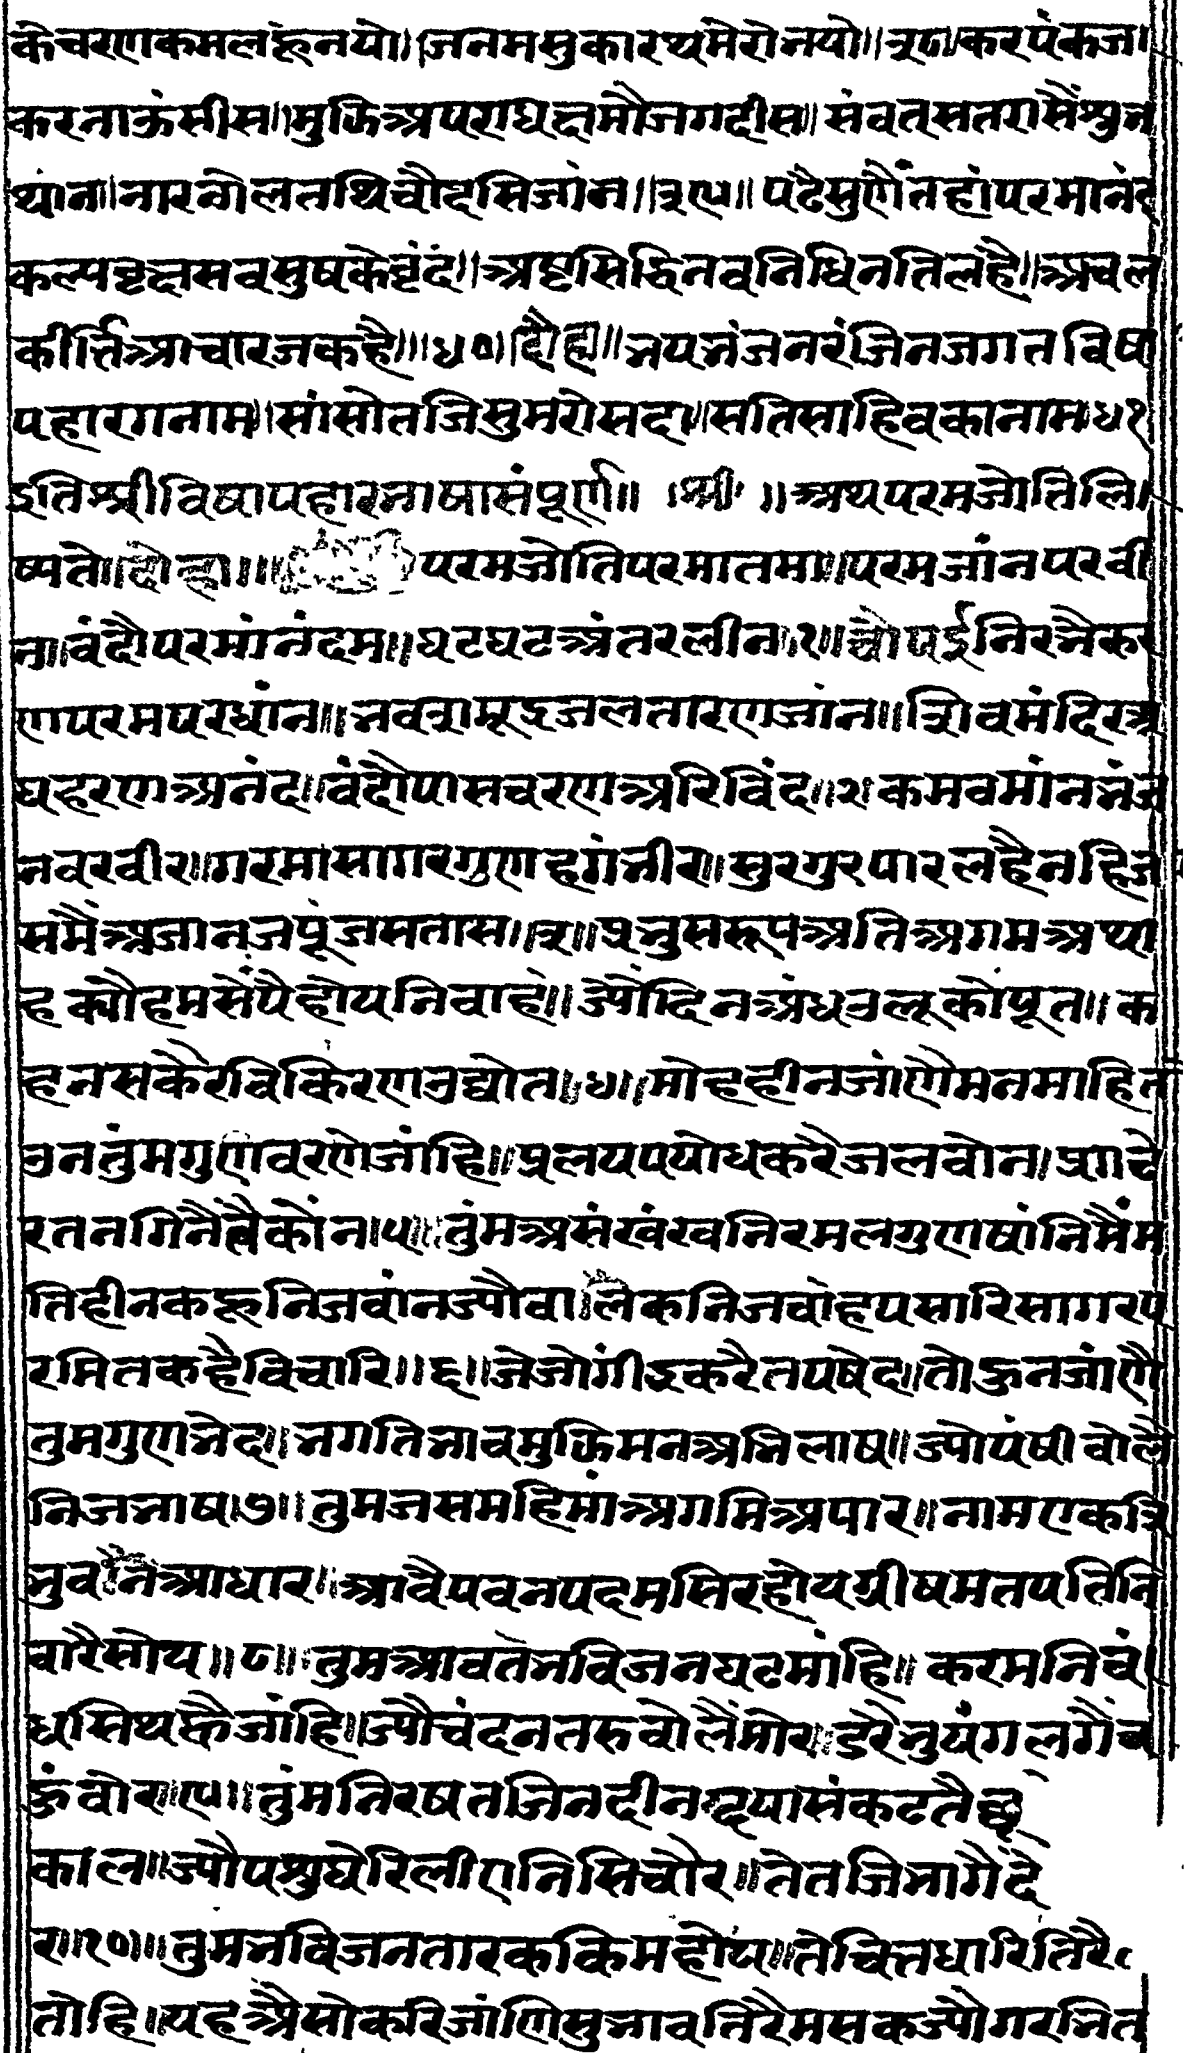 के चरण कमल हूं नयो॥ जनम सुकारथ मेरो नयो॥ ३८ कर पंकजा
कर नाऊं सीस॥ मुझि अपराध क्षमौ जगदीस॥ संवत सतरा सैं शुन
थांन॥ नारनोल तथि चौदसि जांन॥ ३९॥ पढै सुणैं तहां परमानंद
कल्पवृक्ष सब सुष के वृंदं॥ अष्ट सिद्धि नव निधि नति लहै॥ अचल
कीर्त्ति आचारज कहै॥ ४०॥ दोहा॥ भय भंजन रंजिन जगत विषा
पहार ग नाम॥ सांसो तजि सुमरो सदा॥ सति साहिब का नाम ४१
इति श्री विषापहार भाषा संपूर्ण॥ श्री॥ अथ परम जोति लि
ष्यते॥ दोहा॥ परम जोति परमातमा॥ परम जांन परवी
न॥ वंदौ परमांनंदम॥ घट घट अंतर लीन॥१॥ चौपई निरभै कर
ण परम परधांन॥ भव समूद्र जल तारण जांन॥ शिव मंदिर अ
घ हरण अनंद॥ वंदौ पास चरण अरिविंद॥२ कमव मांन भंज
न वर वीर॥ गरमा सागर गुणह गंभीर॥ सुर गुर पार लहै नहि ज
स मैं अजान जपूं जस तास॥३॥ प्रभु सरूप अति अगम अथा
ह क्यौ हम सें पै होय निवाह॥ ज्यों दिन अंध उलूको पूत॥ क
ह न सकै रवि किरण उद्योत॥४॥ मोह हीन जांणै मन माहि त
उ न तुंम गुण वरणे जांहि॥ प्रलय पयोध करै जल वोन॥ प्रगटे
रतन गिनै त्वै कोंन।५॥ तुंम असंख्य निरमल गुण षांनि मैं म
ति हीन कहू निज वांन ज्यौ वालक निज वोह पसारि सागर प
रमित कहै विचारि॥६॥ जे जोगी इकरै तप षेद॥ तोऊ न जांणै
तुम गुण भेद॥ भगति भाव मुझि मन अभिलाष॥ ज्यो पंषी वोलै
निज भाष।७॥ तुम जस महिमां अगमि अपार॥ नाम एक त्रि
भुवन आधार॥ आवै पवन पदम सिर होय ग्रीषम तपति नि
वारै सोय॥८॥ तुम आवत भविजन घट मांहि॥ करम नि बं
ध सिथल्है जांहि॥ ज्यौ चंदन तरु वोलैं मोर॥ डरे भुयंग लगैं च
ऊं वोर॥९॥ तुंम निरषत जिन दीन दयाल संकट तै छू
काल॥ ज्यौ पशु घेरि लीण निसि चोर॥ ते तजि भागै दे
र॥१०॥ तुम भविजन तारक किम होय॥ ते चित्त धारि तिरै
तोहि॥ यह अैसो करि जांणि सुभाव तिरै मसक ज्यौ गरभित